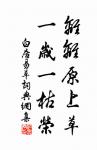 離離原上草
一歲一枯榮
白居易草詞典網集